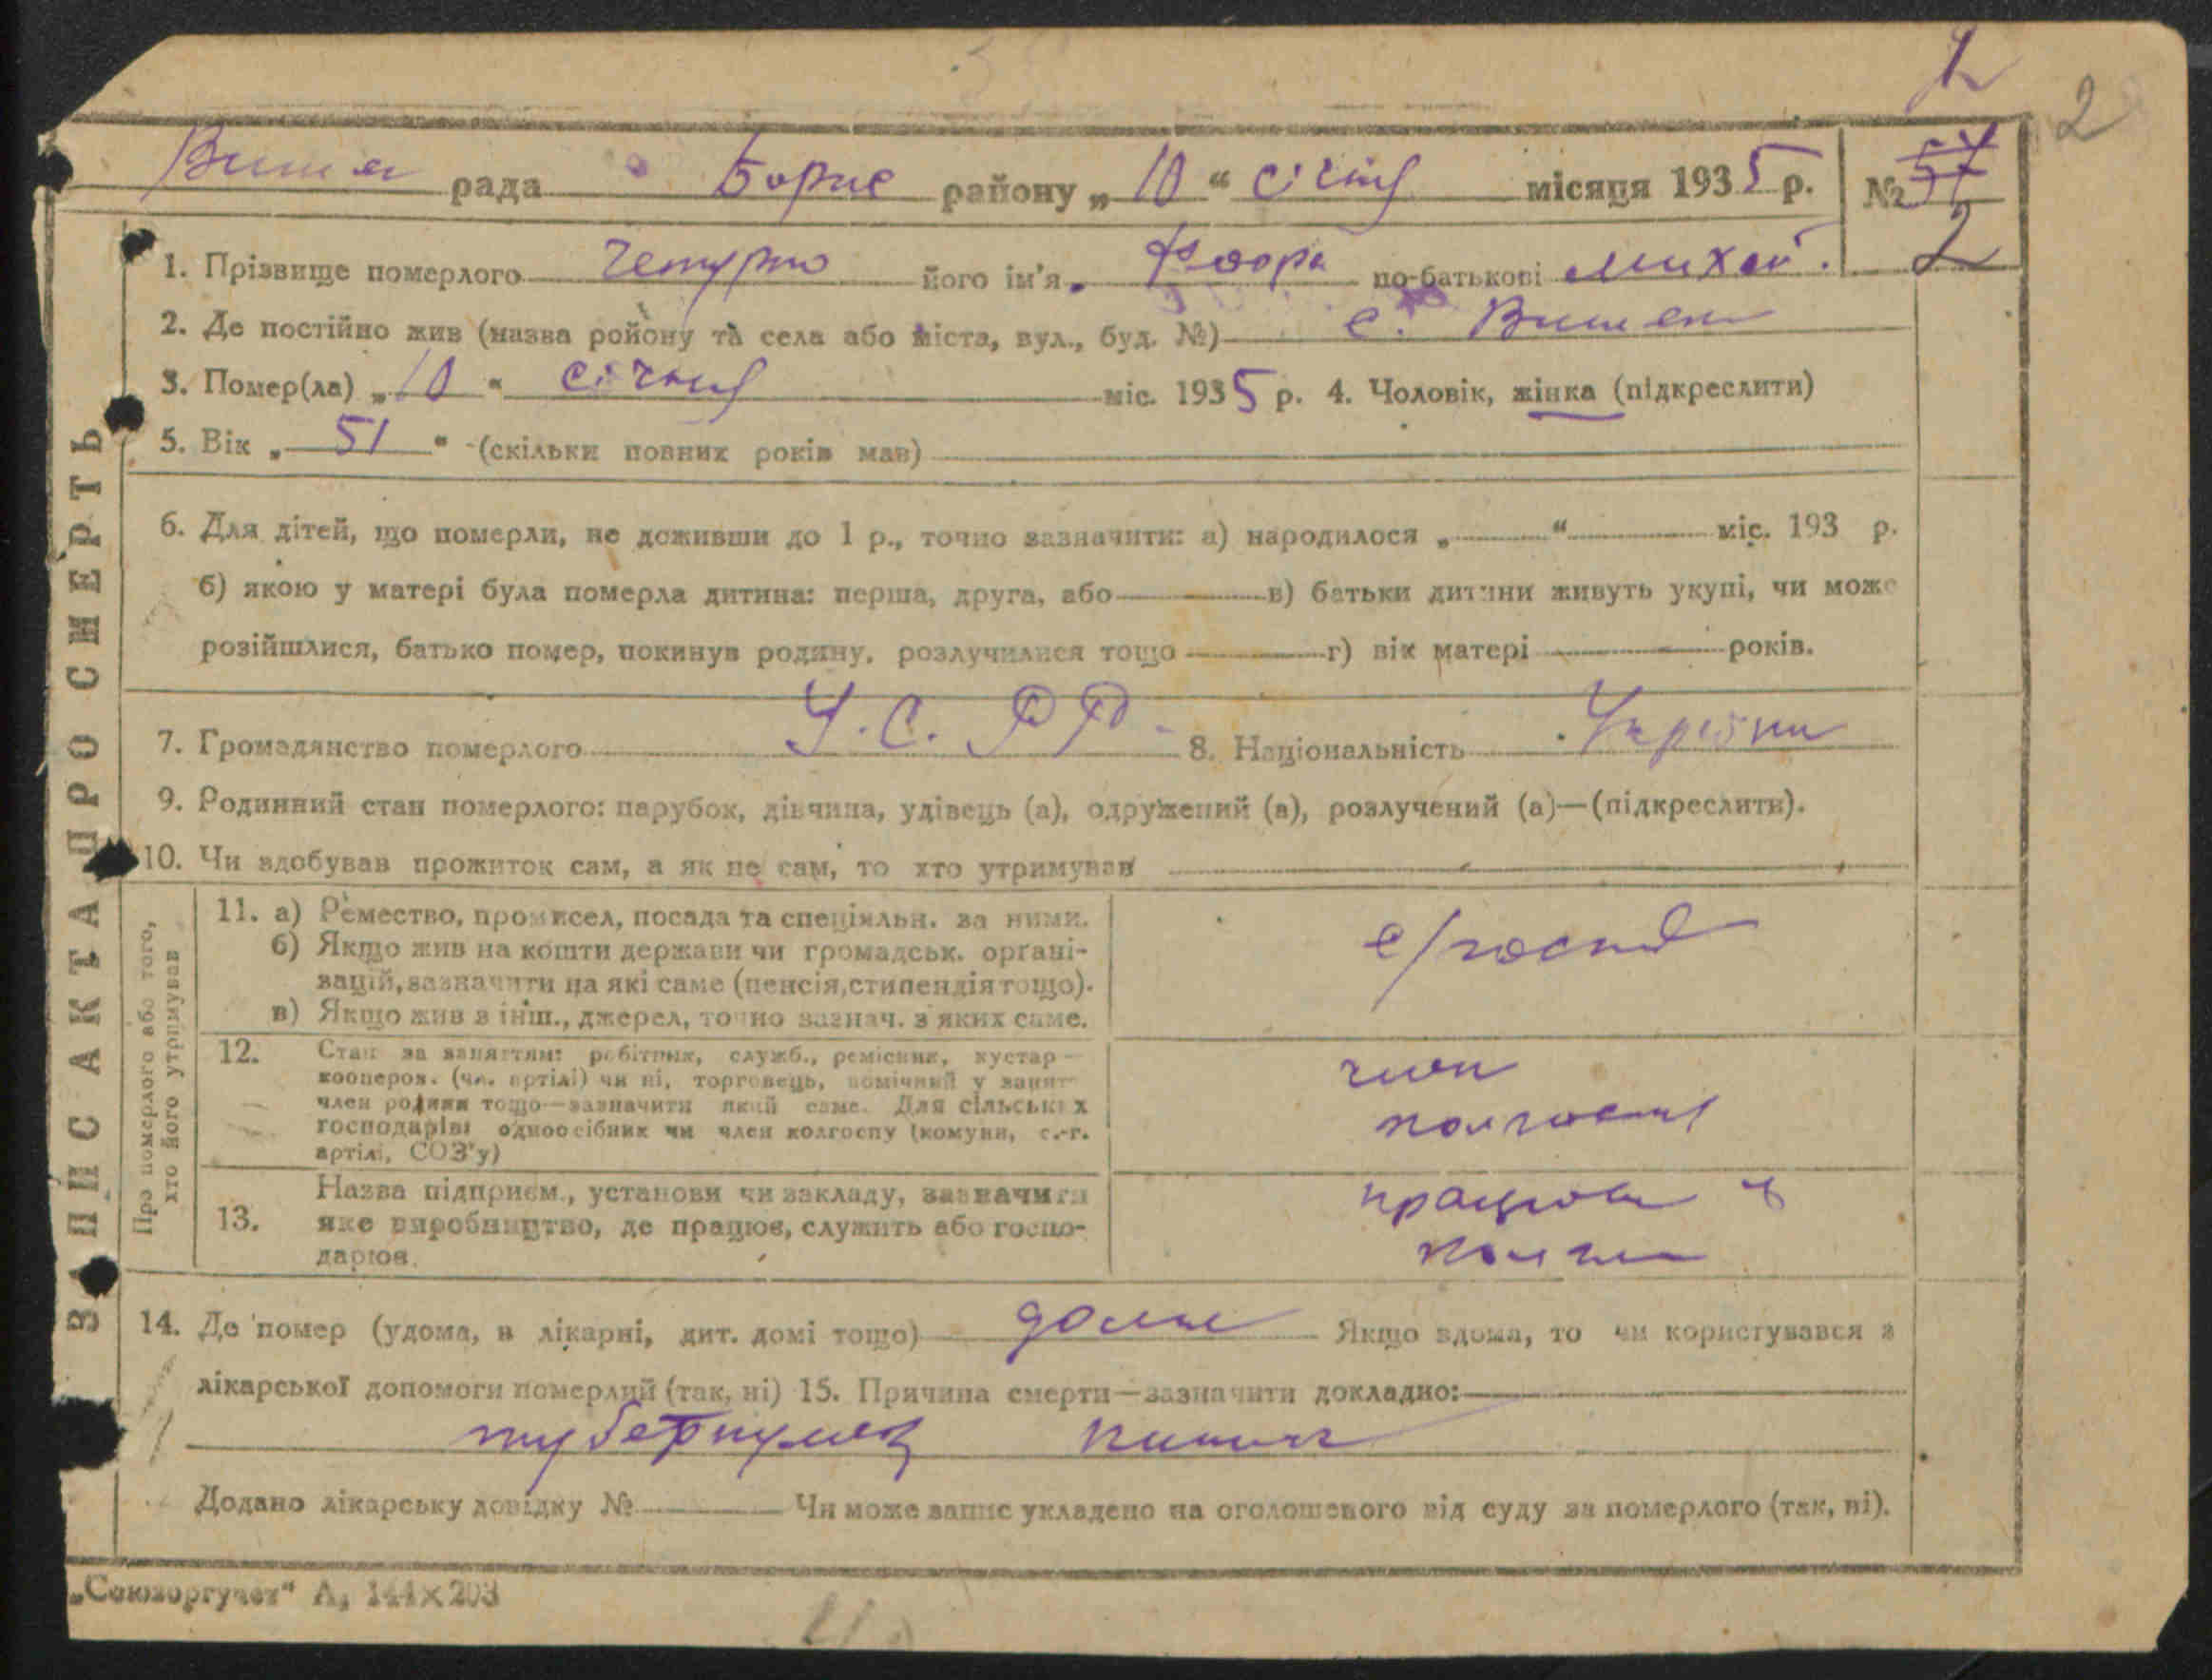 2
2
рада Борис району „10“ січня місяця 1935 р. № 57
2
1. Прізвище померлого його ім'я по-батькові Михай.
2. Де постійно жив (назва ройону та села або міста, вул., буд. №) с.
3. Помер(ла) „10“ січня міс. 1935 р. 4. Чоловік, жінка (підкреслити)
5. Вік „51“ (скільки повних років мав)
6. Для дітей, що померли, не доживши до 1 р., точно зазначити: а) народилося „ “ міс. 193 р.
б) якою у матері була померла дитина: перша, друга, або в) батьки дитини живуть укупі, чи може
розійшлися, батько помер, покинув родину, розлучилися тощо г) вік матері років.
7. Громадянство померлого У.С.РР. 8. Національність
9. Родинний стан померлого: парубок, дівчина, удівець (а), одружений (а), розлучений (а)—(підкреслити).
10. Чи здобував прожиток сам, а як не сам, то хто утримував
Про померлого або того,
хто його утримував
11. а) Ремество, промисел, посада та спеціяльн. за ними.
б) Якщо жив на кошти держави чи громадськ. органі-
зацій, зазначити на які саме (пенсія, стипендія тощо).
в) Якщо жив з інш., джерел, точно зазнач. з яких саме.
с/господ
12. Стан за заняттям: робітник, служб., ремісник, кустар—
кооперов. (чл. артілі) чи ні, торговець, помічний у занят
член родини тощо—зазначити який саме. Для сільських
господарів: одноосібник чи член колгоспу (комуни, с.-г.
артілі, СОЗ'у)
член
колгоспу
13. Назва підприєм., установи чи закладу, зазначити
яке виробництво, де працює, служить або госпо-
дарює.
14. Де помер (удома, в лікарні, дит. домі тощо) дома Якщо вдома, то чи користувався з
лікарської допомоги померлий (так, ні) 15. Причина смерти—зазначити докладно:
туберкульоз
Додано лікарську довідку № Чи може запис укладено на оголошеного від суду за померлого (так, ні).
ЗАПИС АКТА ПРО СМЕРТЬ
„Союзоргучет“ А, 144×203